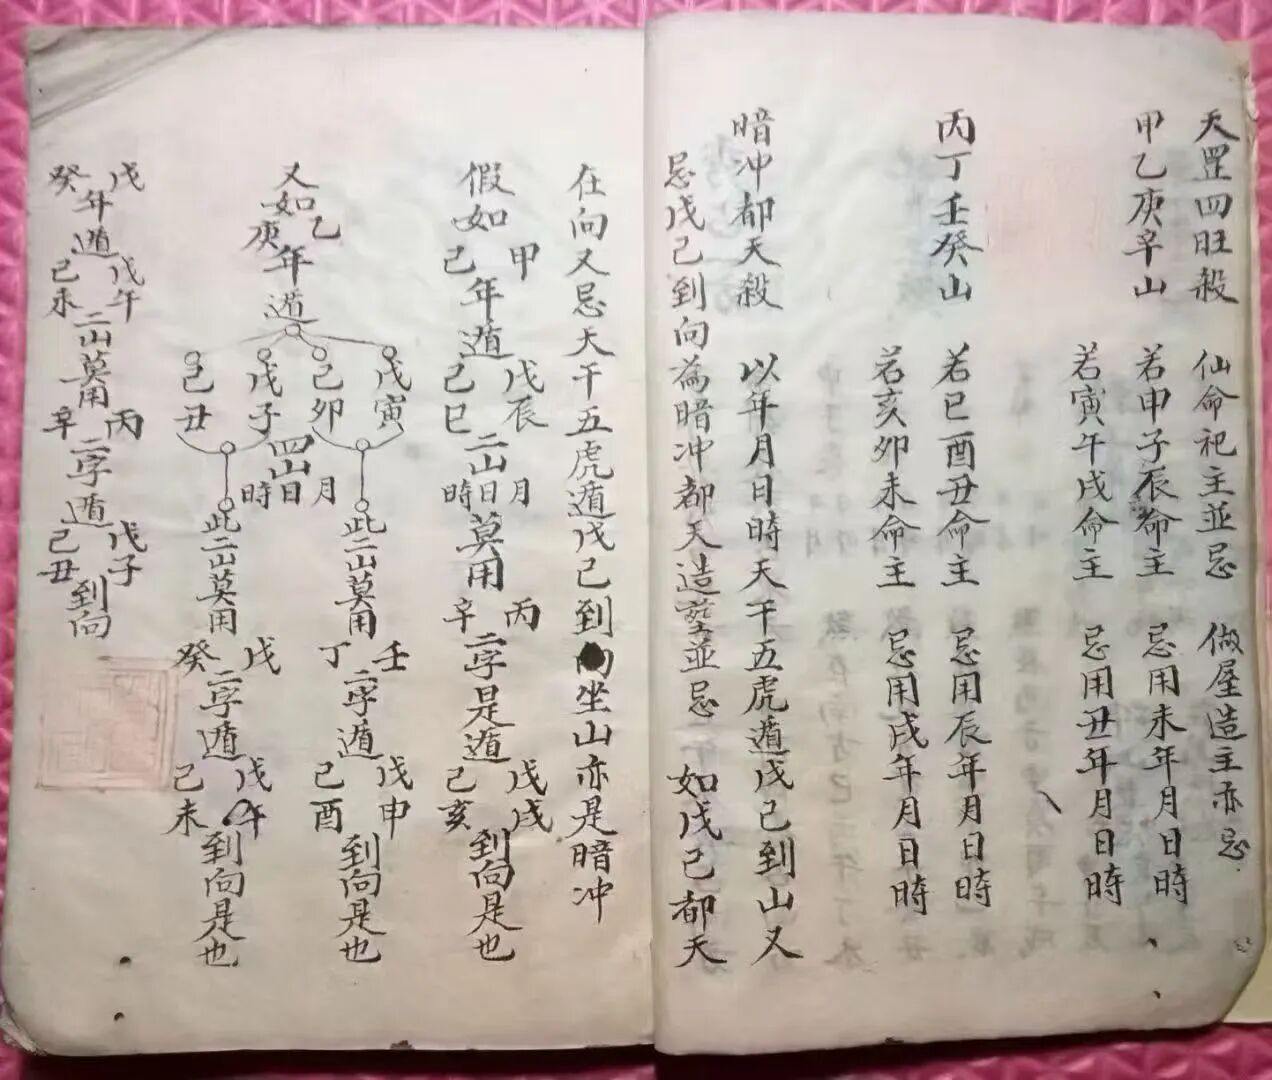 天罡四旺殺 仙命祀主並忌 做屋造主亦忌
甲乙庚辛山 若申子辰命主 忌用未年月日時
若寅午戌命主 忌用丑年月日時
丙丁壬癸山 若巳酉丑命主 忌用辰年月日時
若亥卯未命主 忌用戌年月日時
暗冲都天殺 以年月日時天干五虎遁戊己到山又
忌戊己到向為暗冲都天造塟並忌 如戊己都天
在向又忌天干五虎遁戊己到向坐山亦是暗冲
假如甲己年遁戊辰己巳二山月日時莫用丙辛二字是遁戊戌己亥到向是也
又如乙庚年遁
戊寅己卯戊子己丑四山月日時
此二山莫用壬丁二字遁戊申己酉到向是也
此二山莫用戊癸二字遁戊午己未到向是也
戊癸年遁戊午己未二山莫用丙辛二字遁戊子己丑到向